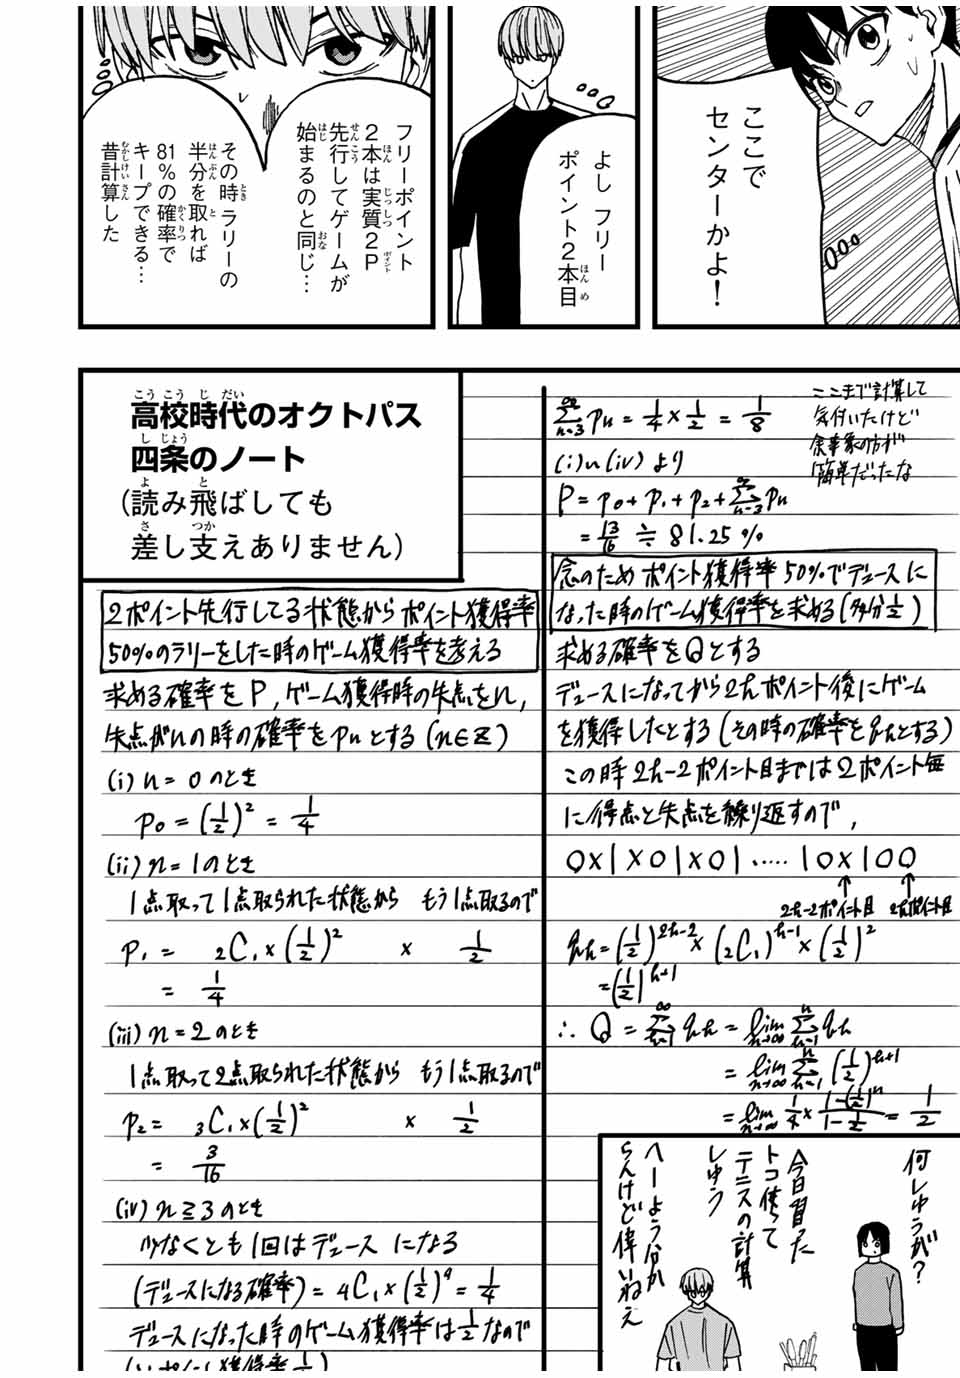 ここで
センターかよ！
よし フリー
ポイント２本目
フリーポイント
２本は実質２Ｐ
先行してゲームが
始まるのと同じ…
その時ラリーの
半分を取れば
81％の確率で
キープできる…
昔計算した
高校時代のオクトパス
四条のノート
(読み飛ばしても
差し支えありません)
2ポイント先行してる状態からポイント獲得率
50%のラリーをした時のゲーム獲得率を考える
求める確率をP, ゲーム獲得時の失点をn,
失点がnの時の確率をpnとする (n∈Z)
(i) n = 0 のとき
p0 = (1/2)^2 = 1/4
(ii) n = 1 のとき
1点取って1点取られた状態から もう1点取るので
p1 = 2C1 × (1/2)^2 × 1/2
= 1/4
(iii) n = 2 のとき
1点取って2点取られた状態から もう1点取るので
p2 = 3C1 × (1/2)^2 × 1/2
= 3/16
(iv) n ≧ 3 のとき
少なくとも1回はデュースになる
(デュースになる確率) = 4C1 × (1/2)^4 = 1/4
デュースになった時のゲーム獲得率は1/2なので
Σ[n=3→∞] pn = 1/4 × 1/2 = 1/8
ここまで計算して
気付いたけど
余事象の方が
簡単だったな
(i)〜(iv) より
P = p0 + p1 + p2 + Σ[n=3→∞] pn
= 13/16 ≒ 81.25 %
念のためポイント獲得率50%でデュースに
なった時のゲーム獲得率を求める (多分1/2)
求める確率をQとする
デュースになってから2hポイント後にゲーム
を獲得したとする (その時の確率をqhとする)
この時 2h-2ポイント目までは2ポイント毎
に得点と失点を繰り返すので,
0×1×01×01 ····· 10×100
2h-2ポイント目 2hポイント目
qh = (1/2)^(2h-2) × (2C1)^(h-1) × (1/2)^2
= (1/2)^(h+1)
∴ Q = Σ[h=1→∞] qh = lim[n→∞] Σ[h=1→n] qh
= lim[n→∞] Σ[h=1→n] (1/2)^(h+1)
= lim[n→∞] 1/4 × (1-(1/2)^n)/(1-1/2) = 1/2
何しゅうが？
今日習った
トコ使って
テニスの計算
しゅう
へーよう分か
らんけど偉いねえ